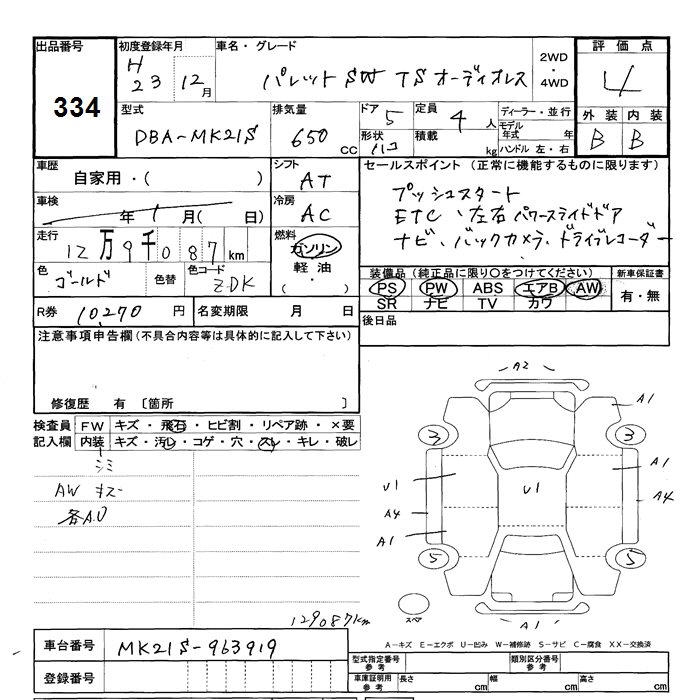 出品番号 初度登録年月 車名・グレード 2WD・4WD 評価点
334 H23 12月 パレットSW TSオーディオレス 4
型式 排気量 ドア 5 定員 4人 ディーラー・並行 外装 内装
DBA-MK21S 650CC 形状 ハコ 積載 kg モデル年式 年 B B
ハンドル 左・右
車歴 シフト セールスポイント (正常に機能するものに限ります)
自家用・( ) AT プッシュスタート
車検 年 1月( 日) 冷房 AC ETC、左右パワースライドドア
走行 12万9千087km 燃料 ガソリン・軽油・( ) ナビ、バックカメラ、ドライブレコーダー
色 ゴールド 色替 色コード ZDK 装備品 (純正品に限り○をつけてください) 新車保証書
PS PW ABS エアB AW 有・無
SR ナビ TV カワ
R券 10270円 名変期限 月 日 後日品
注意事項申告欄(不具合内容等は具体的に記入して下さい)
修復歴 有 〔箇所 〕
検査員 FW キズ・飛石・ヒビ割・リペア跡・×要
記入欄 内装 キズ・汚レ・コゲ・穴・スレ・キレ・破レ
シミ
AW キズー
各A.U
A2
A1
3 3
U1 U1 A1
A4 A4
A1
5 5
スペア A1
129087km
A-キズ E-エクボ U-凹み W-補修跡 S-サビ C-腐食 XX-交換済
車台番号 MK21S-963919 型式指定番号 参考 類別区分番号 参考
登録番号 車庫証明用 参考 長さ cm 幅 cm 高さ cm